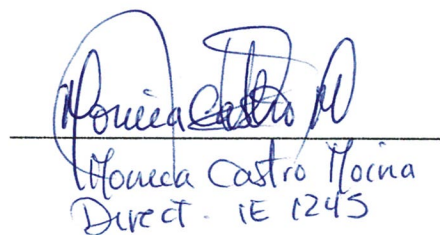 Monica Castro M
Monica Castro Mocna
Direct. IE 1245